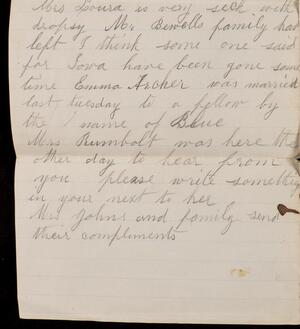 Mrs Loura is very sick with
dropsy Mr Bewells family has
left I think some one said
for Iowa have been gone some
time Emma Archer was married
last tuesday to a fellow by
the name of Blue
Mrs Rumbolt was here the
other day to hear from
you please write something
in your next to her
Mrs Johns and family send
their compliments